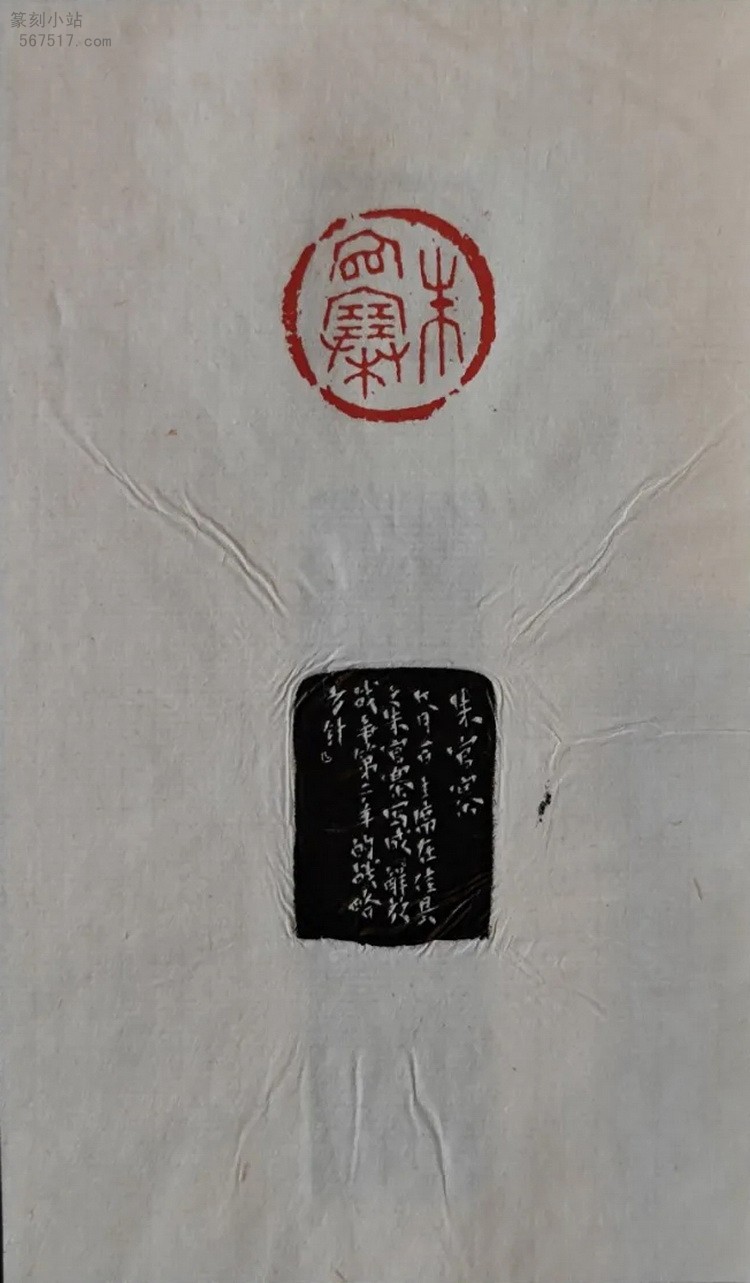 篆刻小站
567517.com
朱官寨
朱官寨
八月毛主席在佳县
之朱官寨写成解放
战争第二年的战略
方針